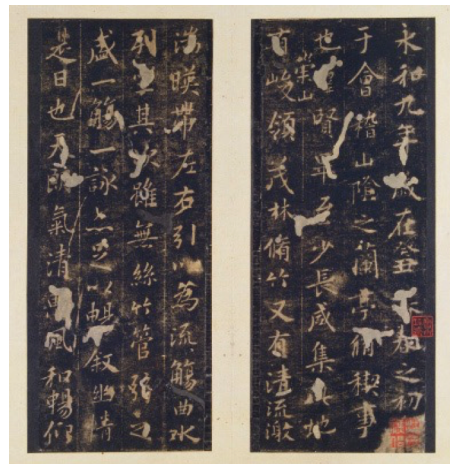 永和九年歲在癸丑暮春之初
于會稽山陰之蘭亭脩稧事
也羣賢畢至少長咸集此地
崇山
有峻領茂林脩竹又有清流激
湍暎帶左右引以為流觴曲水
列坐其次雖無絲竹管弦之
盛一觴一詠亦足以暢敘幽情
是日也天朗氣清惠風和暢仰